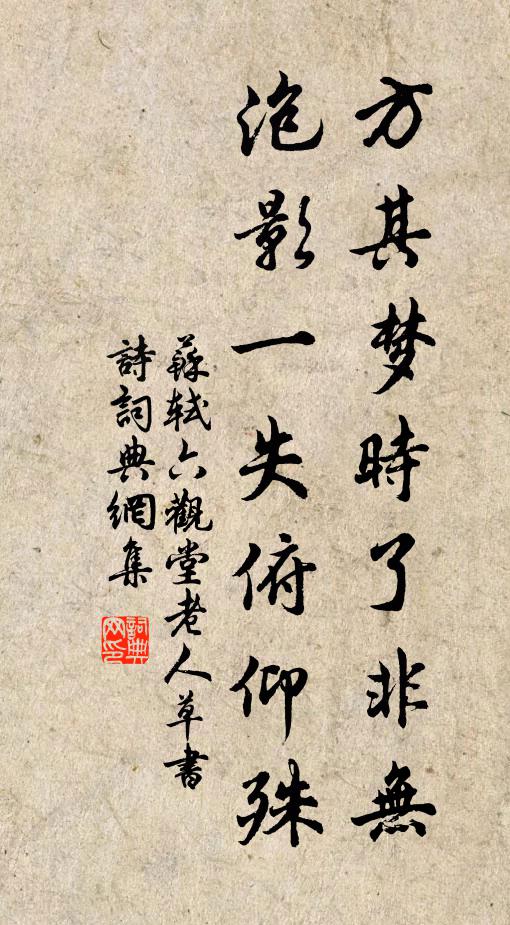 方其梦時了非無
泡影一失俯仰殊
蘇軾六觀堂老人草書
詩詞典網集
詞典网印